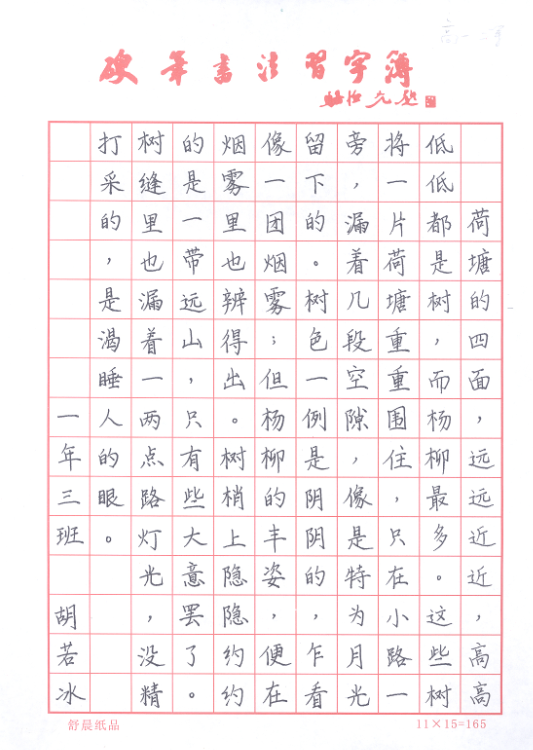 硬筆書法習字簿
荷塘的四面，远远近近，高高
低低都是树，而杨柳最多。这些树
将一片荷塘重重围住，只在小路一
旁，漏着几段空隙，像是特为月光
留下的。树色一例是阴阴的，乍看
像一团烟雾；但杨柳的丰姿，便在
烟雾里也辨得出。树梢上隐隐约约
的是一带远山，只有些大意罢了。
树缝里也漏着一两点路灯光，没精
打采的，是渴睡人的眼。
一年三班 胡若冰
舒晨纸品
11×15=165